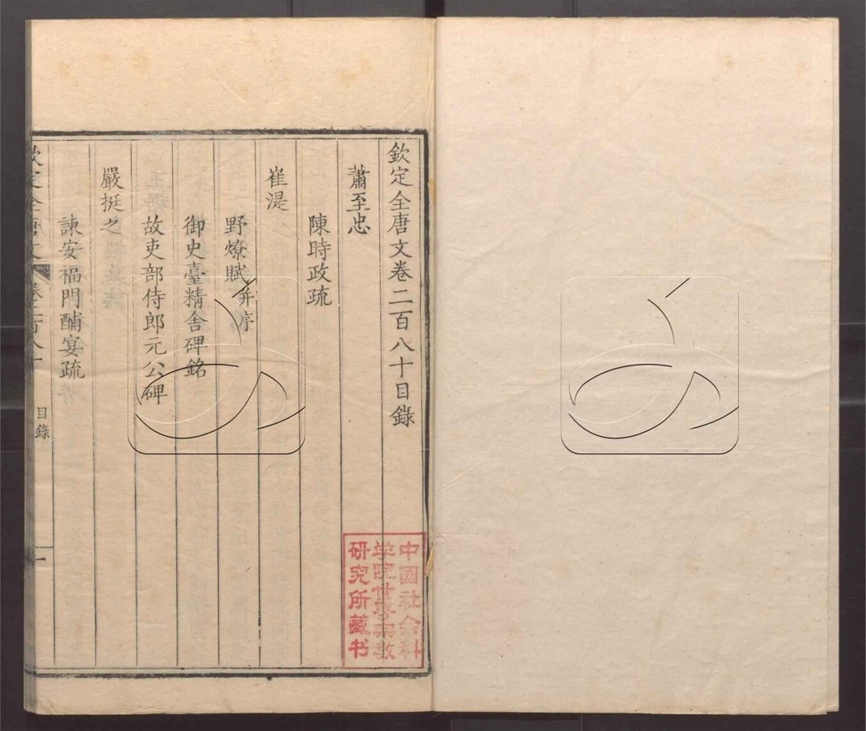 欽定全唐文卷二百八十目錄
蕭至忠
陳時政疏
崔湜
野燎賦并序
御史臺精舍碑銘
故吏部侍郎元公碑
嚴挺之
諫安福門酺宴疏
欽定全唐文
卷二百八十
目錄
一
中國社会科
学院世界宗教
研究所藏书